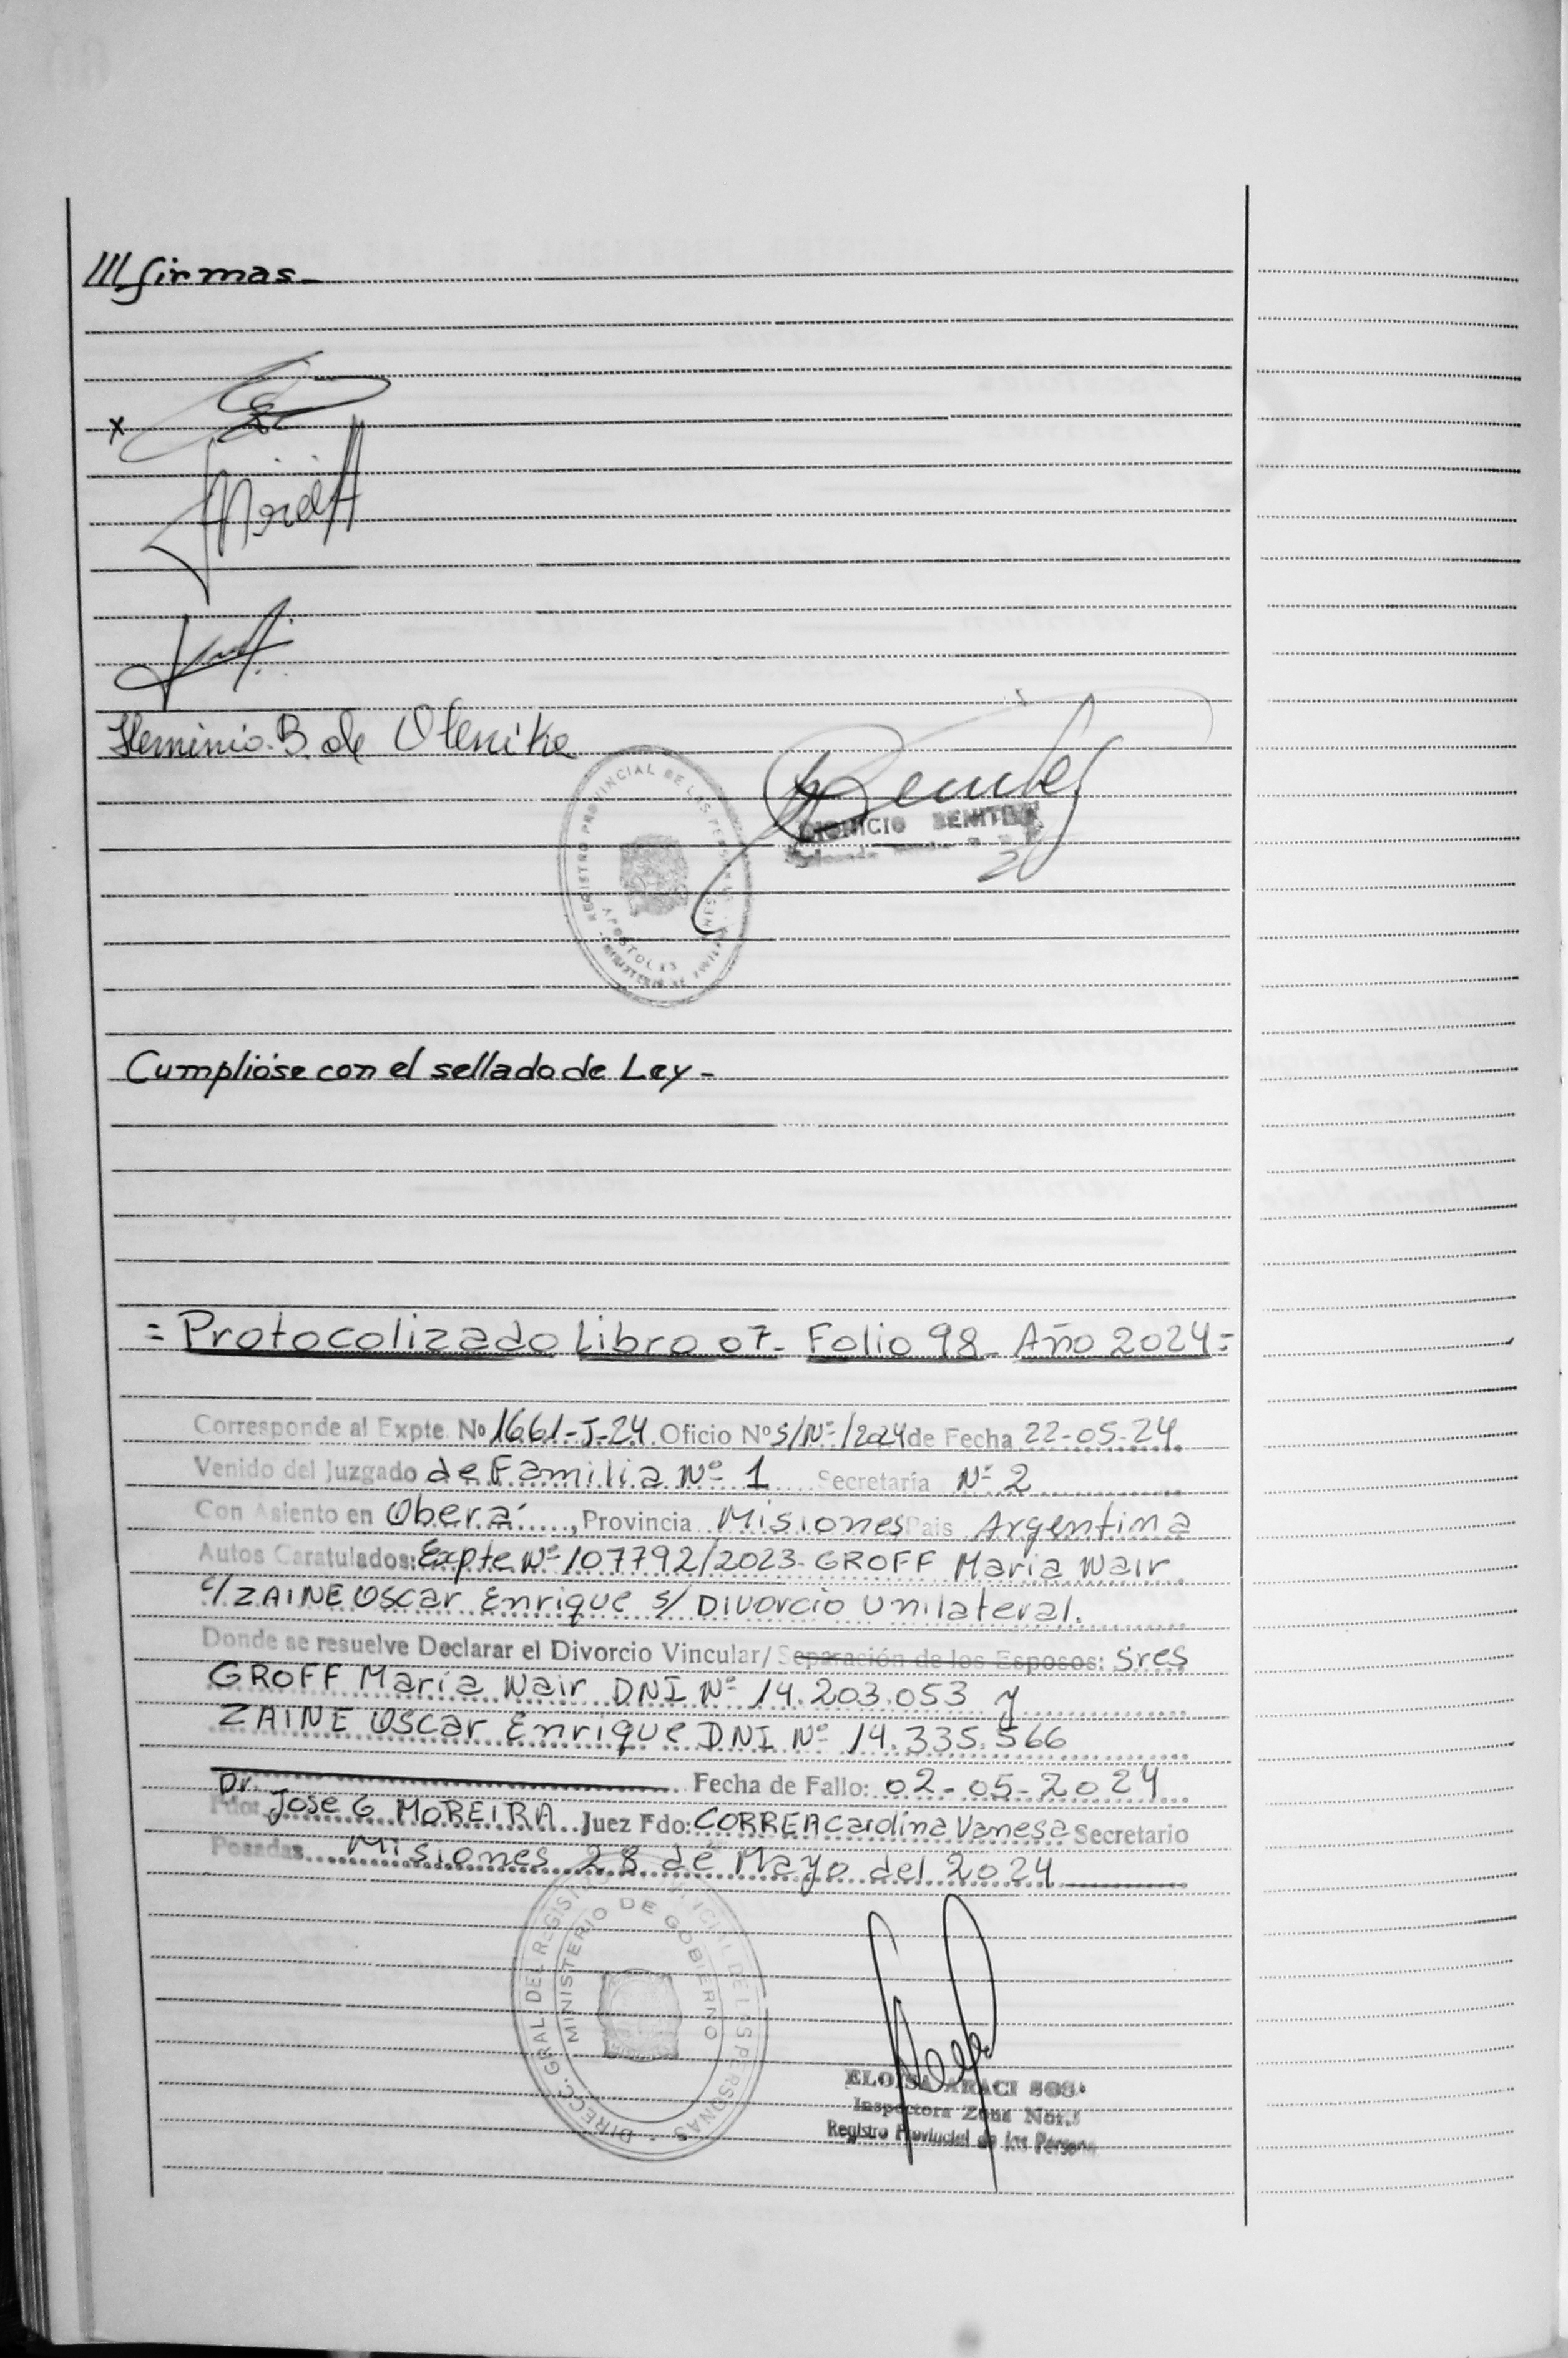 III firmas-
x
Herminio. B. de Olenike
REGISTRO PROVINCIAL DE LAS PERSONAS
APOSTOLES
BENITEZ
Cumplióse con el sellado de Ley-
= Protocolizado Libro 07- Folio 98- Año 2024=
Corresponde al Expte. Nº 1661-J-24. Oficio Nº S/Nº/2024 de Fecha 22-05-24.
Venido del Juzgado de Familia Nº 1 Secretaría Nº 2
Con Asiento en Oberá, Provincia Misiones Pais Argentina
Autos Caratulados: Expte Nº 107792/2023- GROFF Maria Nair
c/ ZAINE Oscar Enrique s/ Divorcio Unilateral.
Donde se resuelve Declarar el Divorcio Vincular/ Separación de los Esposos: Sres
GROFF María Nair DNI Nº 14.203.053 y
ZAINE Oscar Enrique DNI Nº 14.335.566
Fecha de Fallo: 02-05-2024
Fdo: Dr. Jose G MOREIRA Juez Fdo: CORREA Carolina Vanesa Secretario
Posadas Misiones 28 de Mayo del 2024
DIRECC. GRAL. DEL REGISTRO PROVINCIAL DE LAS PERSONAS
MINISTERIO DE GOBIERNO
ELOISA ARACI SOSA
Inspectora Zona Norte
Registro Provincial de las Personas